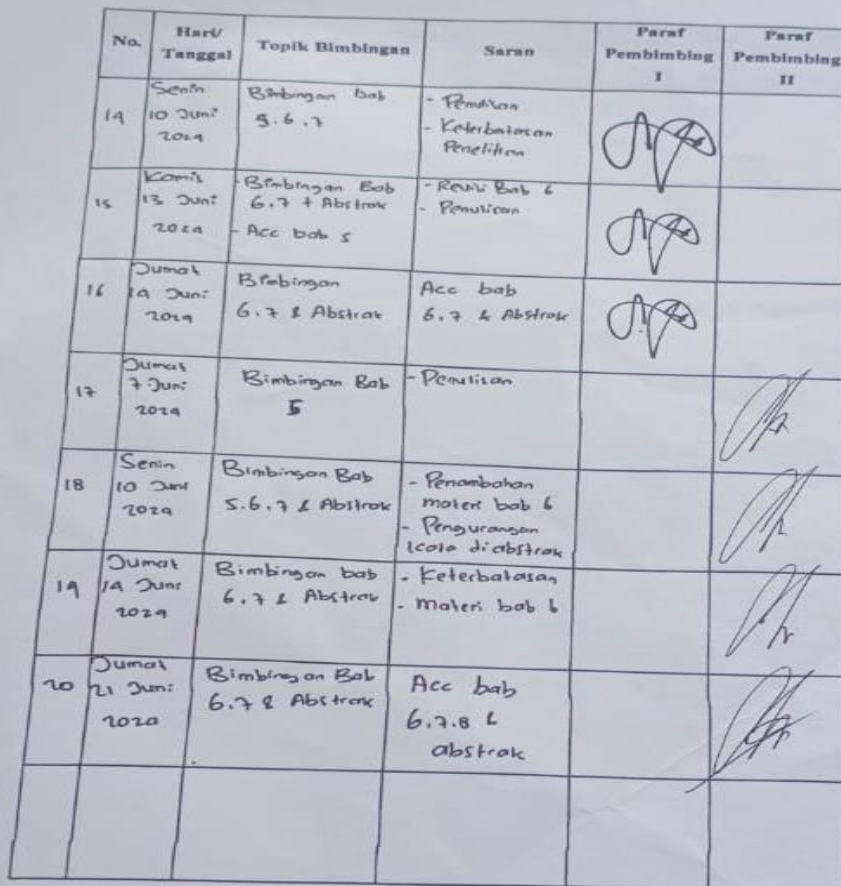 No.
Hari/
Tanggal
Topik Bimbingan
Saran
Paraf
Pembimbing
I
Paraf
Pembimbing
II
14
Senin
10 Juni
2024
Bimbingan bab
5.6.7
- Penulisan
- Keterbatasan
Penelitian
15
Kamis
13 Juni
2024
- Bimbingan Bab
6.7 + Abstrak
- Acc bab 5
- Revisi Bab 6
- Penulisan
16
Jumat
14 Juni
2024
Bimbingan
6.7 & Abstrak
Acc bab
6.7 & Abstrak
17
Jumat
7 Juni
2024
Bimbingan Bab
5
- Penulisan
18
Senin
10 Juni
2024
Bimbingan Bab
5.6.7 & Abstrak
- Penambahan
materi bab 6
- Pengurangan
kata di abstrak
19
Jumat
14 Juni
2024
Bimbingan bab
6.7 & Abstrak
- Keterbatasan
- Materi bab 6
20
Jumat
21 Juni
2024
Bimbingan Bab
6.7 & Abstrak
Acc bab
6.7.8 &
abstrak